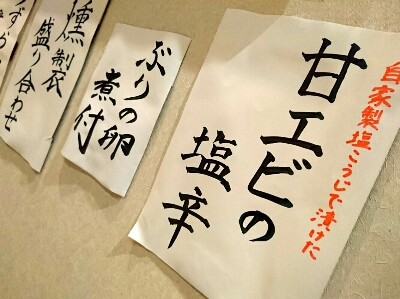 自家製塩こうじで漬けた
甘エビの
塩辛
ぶりの卵
煮付
燻製
盛り合わせ